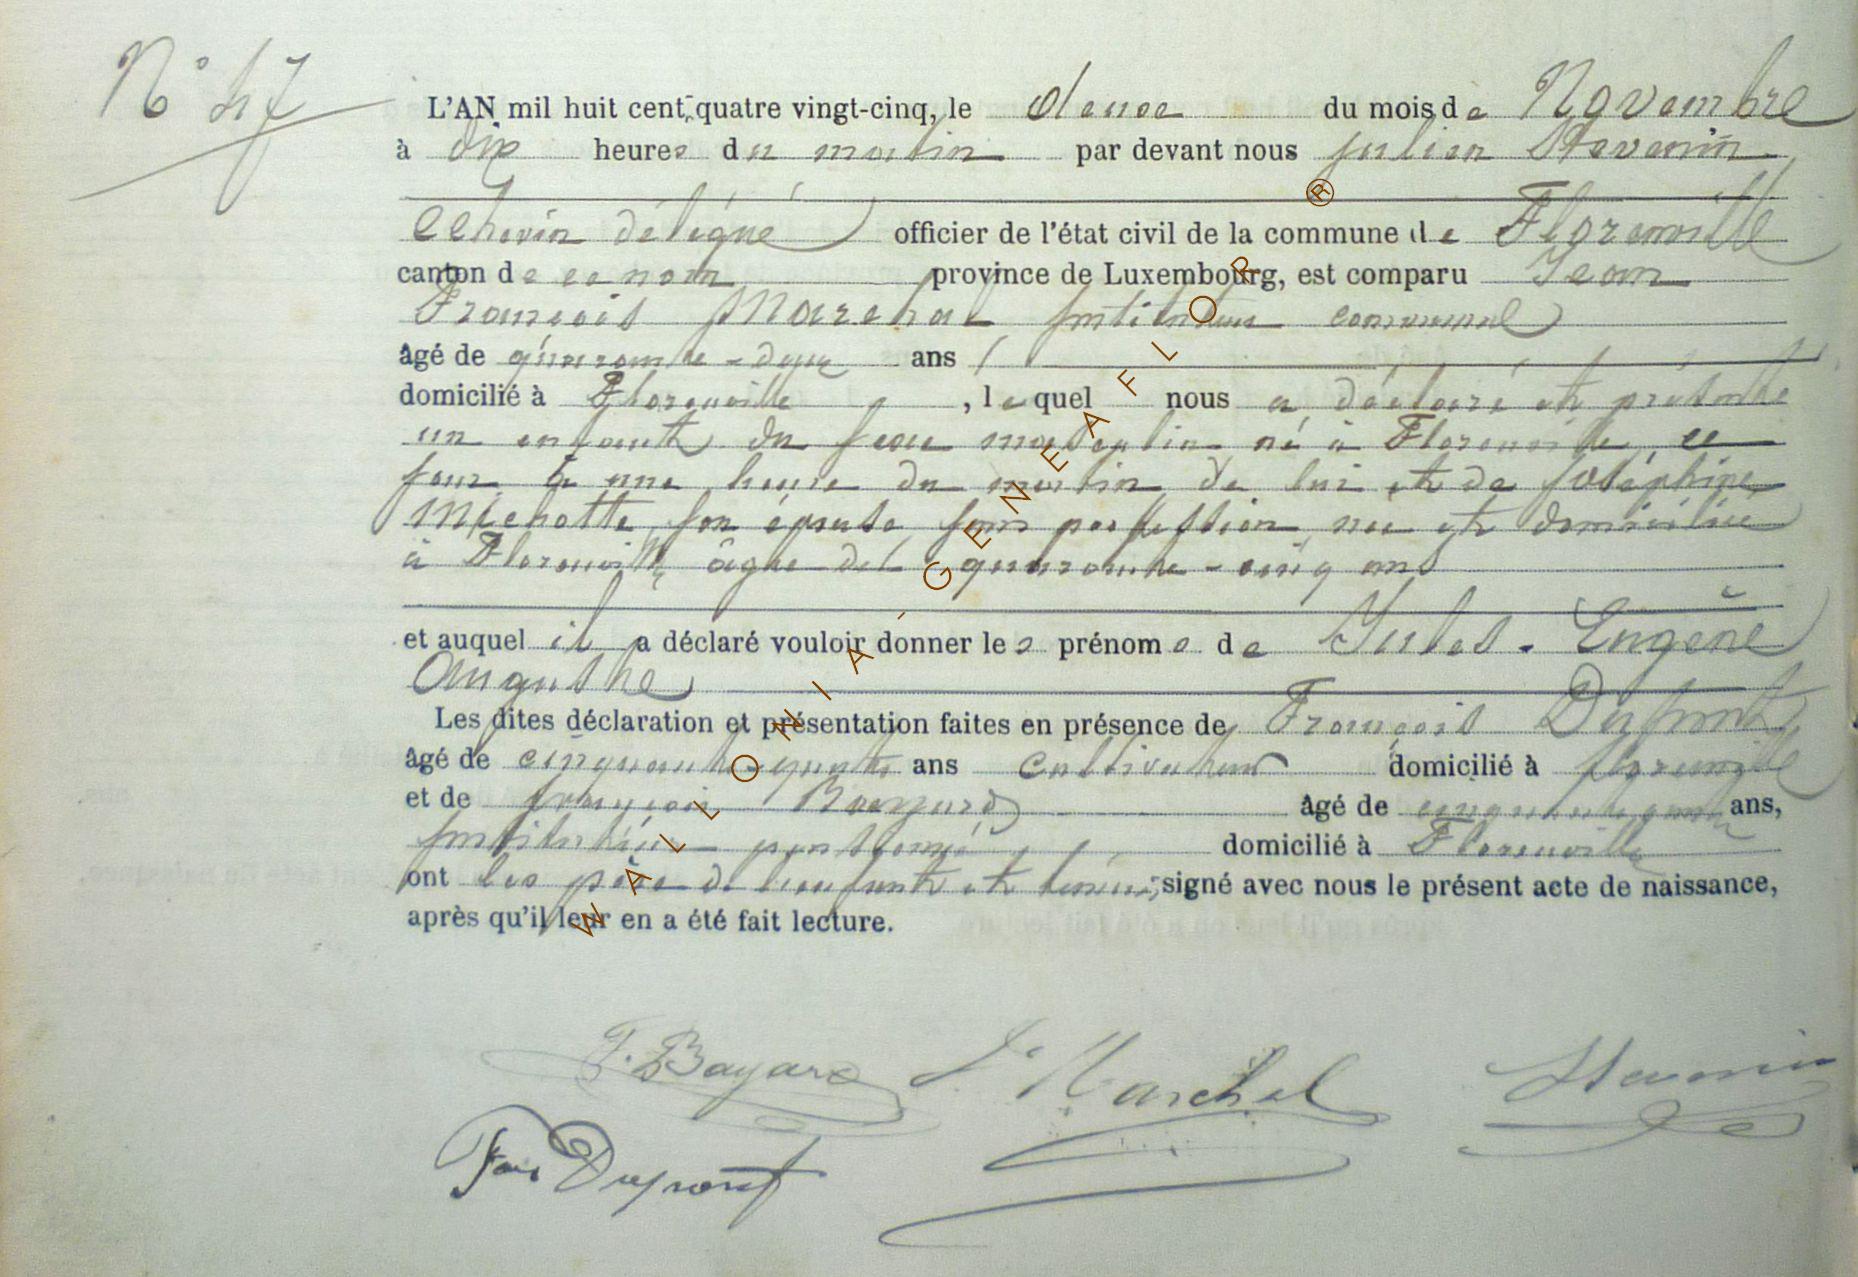 N° 47
L'AN mil huit cent quatre vingt-cinq, le deux du mois de Novembre
à dix heures du matin par devant nous Julien Stevenin
Echevin délégué officier de l'état civil de la commune de Florenville
canton de ce nom province de Luxembourg, est comparu Jean
François Marchal Instituteur communal
âgé de quarante-deux ans
domicilié à Florenville, lequel nous a déclaré et présenté
un enfant du sexe masculin né à Florenville, ce
jour à une heure du matin de lui et de Joséphine
Michotte son épouse sans profession née et domiciliée
à Florenville âgée de quarante-cinq ans
et auquel il a déclaré vouloir donner les prénoms de Jules-Eugène
Auguste
Les dites déclaration et présentation faites en présence de François Dupont
âgé de cinquante-quatre ans cultivateur domicilié à florenville
et de françois Bayard âgé de ans,
Instituteur pensionné domicilié à Florenville
ont les père de l'enfant et témoins signé avec nous le présent acte de naissance,
après qu'il leur en a été fait lecture.
F. Bayard J. Marchal Stevenin
Fois Dupont
WALLONIA - GENEAFLOR ®